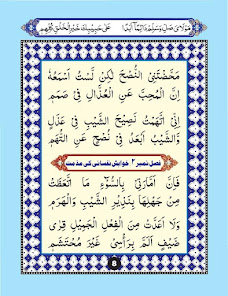 مَوْلَايَ صَلِّ وَسَلِّمْ دَائِمًا اَبَدًا عَلٰی حَبِيْبِكَ خَيْرِ الْخَلْقِ كُلِّهِمِ
مَحَّضْتَنِي النُّصْحَ لٰكِنْ لَّسْتُ اَسْمَعُهٗ
اِنَّ الْمُحِبَّ عَنِ الْعُذَّالِ فِيْ صَمَمِ
اِنِّي اتَّهَمْتُ نَصِيْحَ الشَّيْبِ فِيْ عَذَلِيْ
وَالشَّيْبُ اَبْعَدُ فِيْ نُصْحٍ عَنِ التُّهَمِ
فصل نمبر ۲ خواہش نفسانی کی مذمت
فَاِنَّ اَمَّارَتِيْ بِالسُّوْٓءِ مَا اتَّعَظَتْ
مِنْ جَهْلِهَا بِنَذِيْرِ الشَّيْبِ وَالْهَرَمِ
وَلَا اَعَدَّتْ مِنَ الْفِعْلِ الْجَمِيْلِ قِرٰى
ضَيْفٍ اَلَمَّ بِرَأْسِيْ غَيْرَ مُحْتَشَمِ